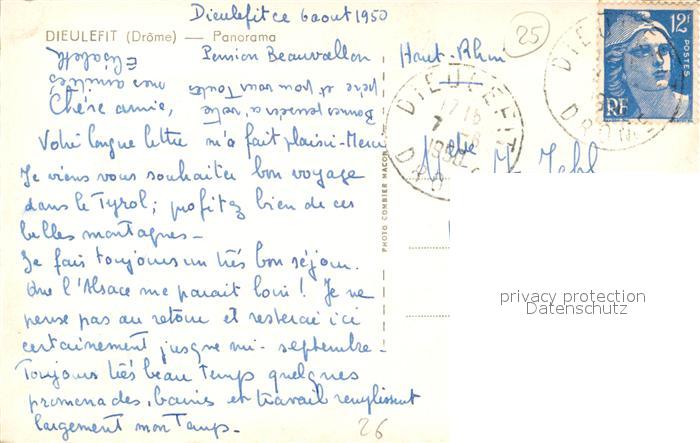 Dieulefit ce 6 aout 1950
DIEULEFIT (Drôme) — Panorama
Pension Beauvallon
Chère amie,
Votre longue lettre m'a fait plaisir - Merci
Je viens vous souhaiter bon voyage
dans le Tyrol; profitez bien de ces
belles montagnes -
Je fais toujours un très bon séjour.
Que l'Alsace me parait loin! Je ne
pense pas au retour et resterai ici
certainement jusque mi-septembre -
Toujours très beau temps quelques
promenades, bains et travail remplissent
largement mon Temps -
Bonnes pensées à votre
père et pour vous Toutes
mes amitiés
Elisabeth
26
PHOTO COMBIER MACON
25
Haut-Rhin
DIEULEFIT
DROME
12F
POSTES
RF
DIEULEFIT
DROME
privacy protection
Datenschutz